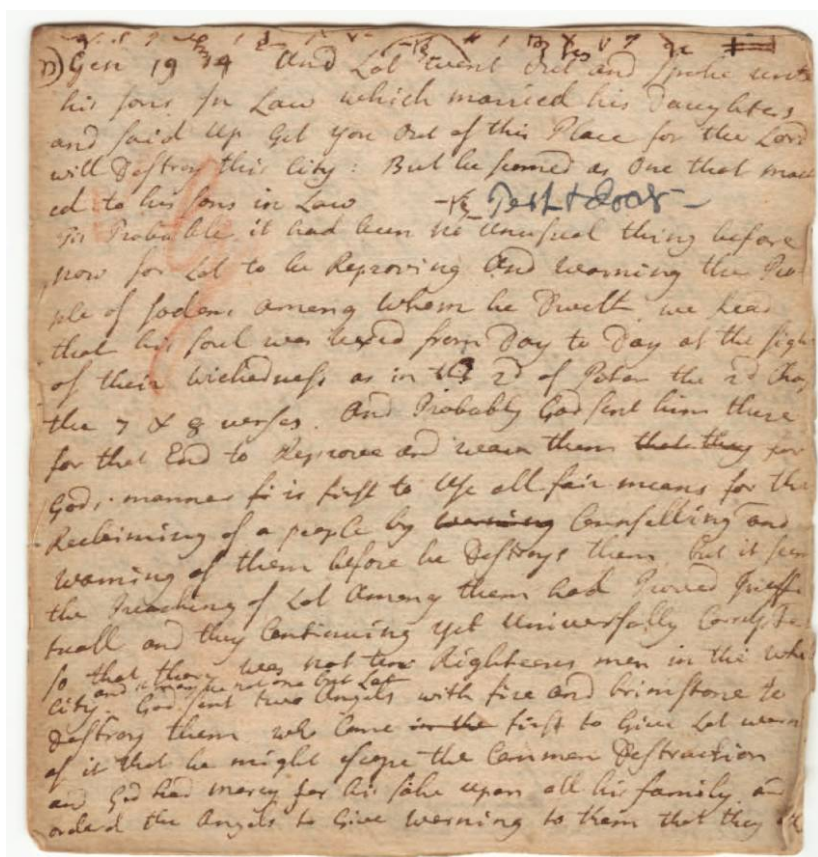 Gen 19 14 And Lot went Out and Spoke unto
his sons In Law which married his Daughters
and said Up Get you Out of this Place for the Lord
will Destroy this City: But he seemed as One that mock
ed to his sons in Law
Tis Probable it had been no Unusual thing before
now for Lot to be Reproving And warning the Peo
ple of Sodom among Whom he Dwelt we Read
that his soul was vexed from Day to Day at the sight
of their wickedness as in the 2d of Peter the 2d Chap
the 7 & 8 verses. And Probably God sent him there
for that End to Reprove and warn them that they for
Gods manner is first to Use all fair means for the
Reclaiming of a people by warning Counselling and
warning of them before he Destroys them but it seem
the Preaching of Lot Among them had Proved Ineffec
tuall and they Continuing yet Universally Corrupt
so that there was not ten Righteous men in the whole
and it may be not one but Lot
City. God sent two Angels with fire and brimstone to
Destroy them who Came in the first to Give Lot warn
of it that he might escape the Common Destruction
and God had mercy for his sake upon all his family an
orderd the Angels to Give Warning to them that they